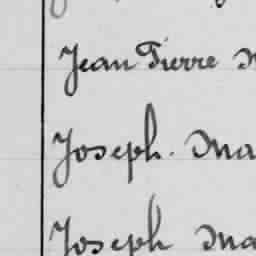 Jean Pierre
Joseph. Ma
Joseph Ma